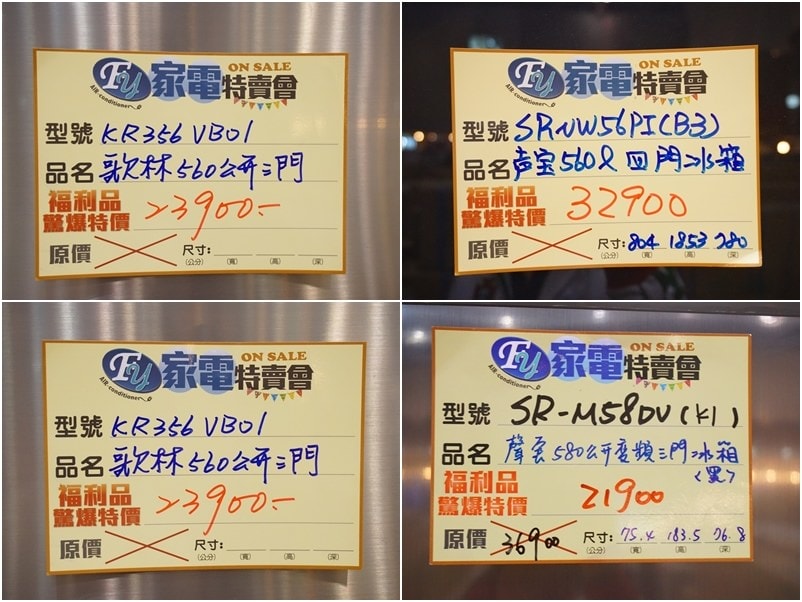 FY
AIR-conditioner
家電特賣會
ON SALE
型號 KR356 VB01
品名 歌林560公升三門
福利品
驚爆特價 23900.-
原價
尺寸:
(公分) (寬) (高) (深)
FY
AIR-conditioner
家電特賣會
ON SALE
型號 SR-NW56PI(B3)
品名 声宝560l 四門冰箱
福利品
驚爆特價 32900
原價
尺寸: 804 1853 780
(公分) (寬) (高) (深)
FY
AIR-conditioner
家電特賣會
ON SALE
型號 KR356 VB01
品名 歌林560公升三門
福利品
驚爆特價 23900.-
原價
尺寸:
(公分) (寬) (高) (深)
FY
AIR-conditioner
家電特賣會
ON SALE
型號 SR-M58DV(K1)
品名 聲宝580公升變頻三門冰箱
<黑>
福利品
驚爆特價 21900
原價 36900
尺寸: 75.4 183.5 76.8
(公分) (寬) (高) (深)